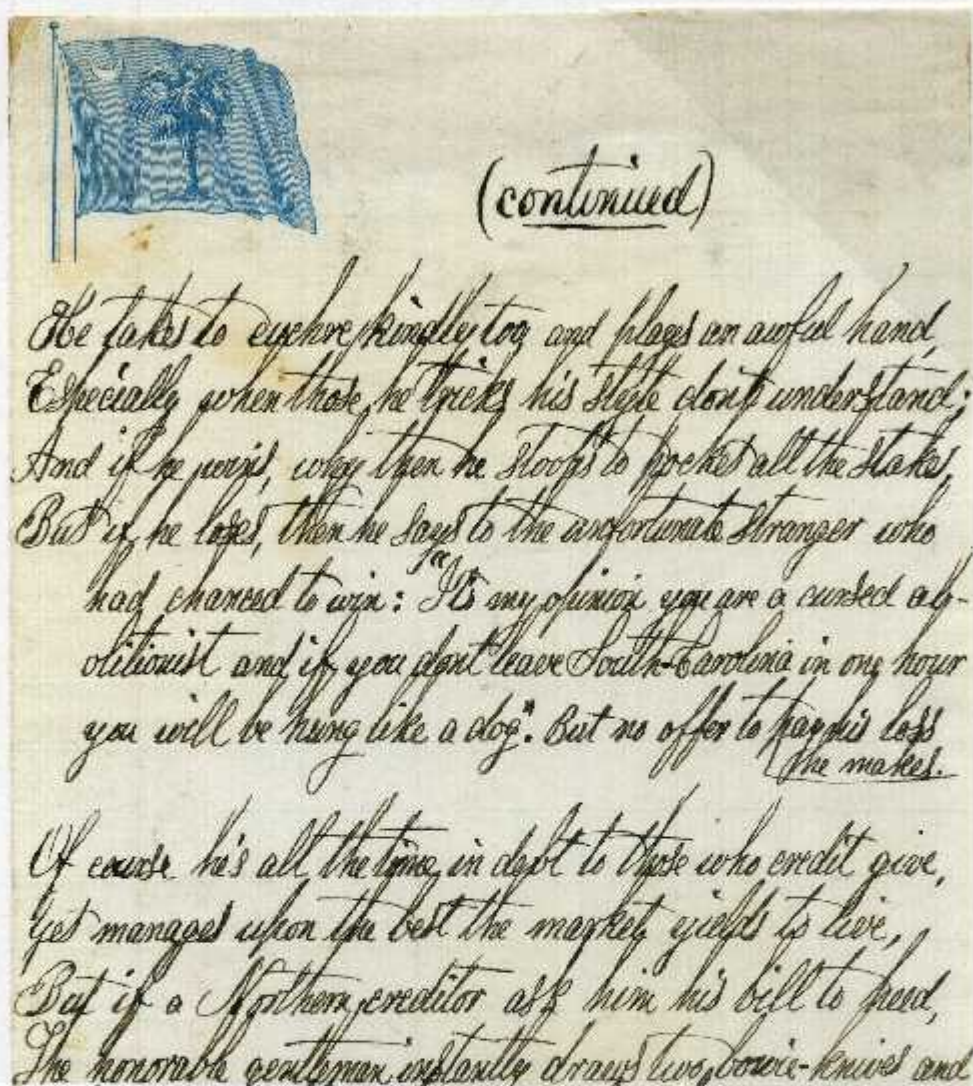 (continued)
He takes to euchre kindly too and plays an awful hand,
Especially when those he tricks his style don't understand;
And if he wins, why then he stoops to pocket all the stakes,
But if he loses, then he says to the unfortunate stranger who
had chanced to win: "It's my opinion you are a cursed ab-
olitionist and if you dont leave South-Carolina in one hour
you will be hung like a dog". But no offer to pay his loss
he makes.
Of course he's all the time in debt to those who credit give,
Yet manages upon the best the market yields to live,
But if a Northern creditor ask him his bill to heed,
The honorable gentleman instantly draws two bowie-knives and